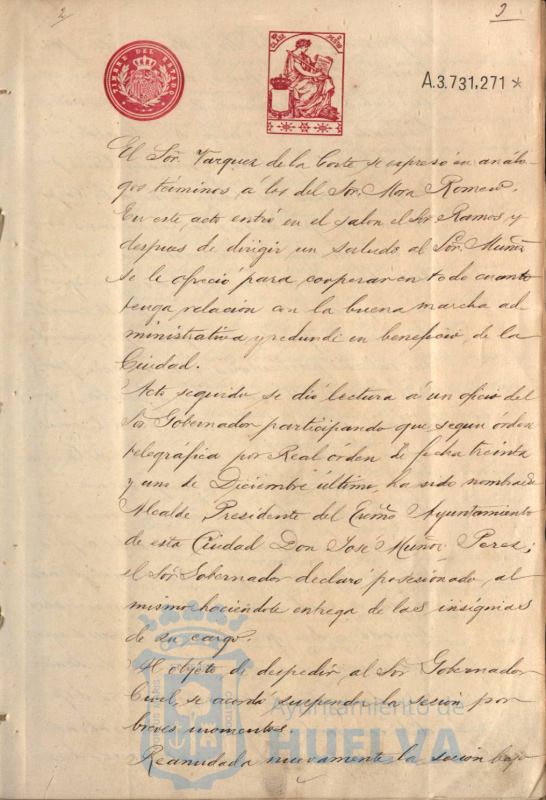 2
3
TIMBRE DEL ESTADO
A.3.731,271*
El Sor. Vazquez de la Corte se expresó en análo-
gos términos, a los del Sor. Mora Romero.
En este acto entró en el salon el Sr. Ramos, y
despues de dirigir un saludo al Sor. Muñoz
se le ofreció para cooperar en todo cuanto
tenga relación con la buena marcha ad-
ministrativa y redunde en beneficio de la
Ciudad.
Acto seguido, se dió lectura á un oficio del
Sor. Gobernador participando que segun órden
telegráfica por Real órden de fecha treinta
y uno de Diciembre último, ha sido nombrado
Alcalde Presidente del Excmo Ayuntamiento
de esta Ciudad Don José Muñoz Perez;
el Sor. Gobernador declaró posesionado, al
mismo haciéndole entrega de las insignias
de su cargo.
Al objeto de despedir, al Sor. Gobernador
Civil, se acordó suspender la sesión por
breves momentos.
Reanudada nuevamente la sesión bajo
Ayuntamiento de
HUELVA